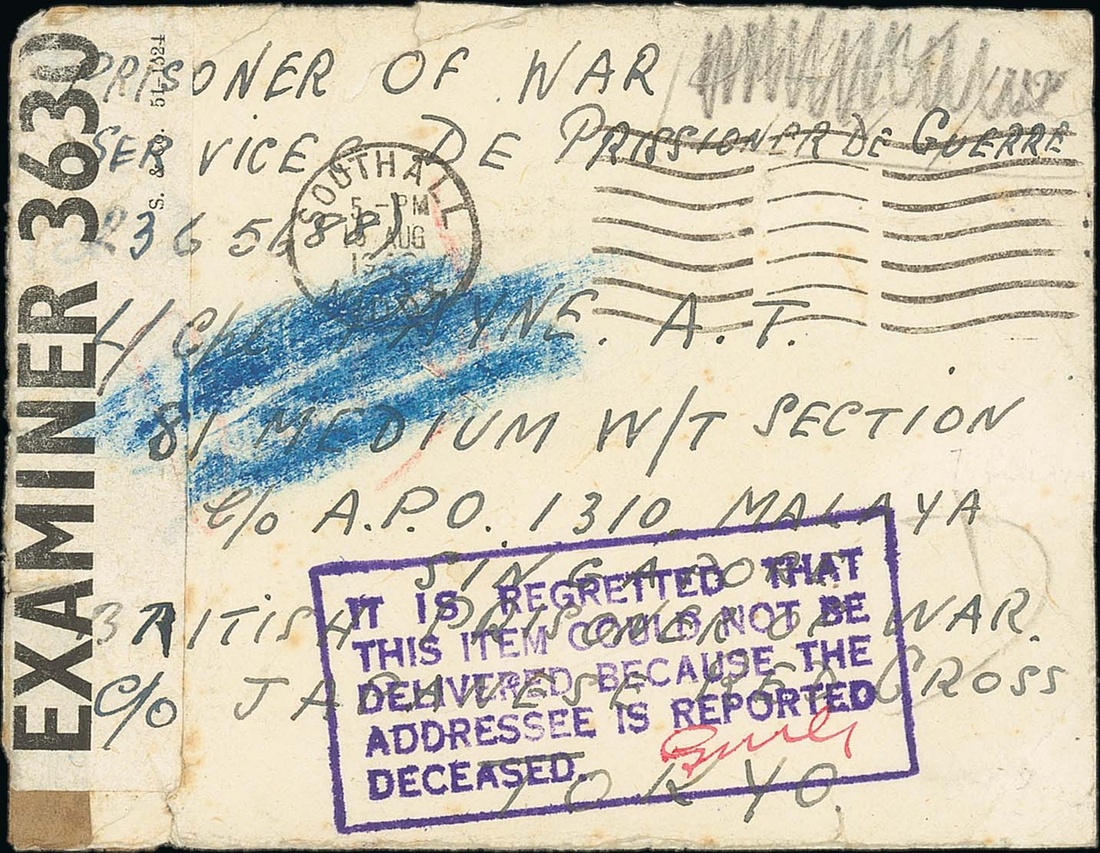 PRISONER OF WAR
SERVICES DE PRISSIONER DE GUERRE
L/CPL PAYNE. A.T.
81 MEDIUM W/T SECTION
C/o A.P.O. 1310. MALAYA
SINGAPORE
BRITISH PRISONER OF WAR.
C/o JAPANESE RED CROSS
TOKYO.
EXAMINER 3630
51-1524
SOUTHALL
5 - PM
AUG
IT IS REGRETTED THAT
THIS ITEM COULD NOT BE
DELIVERED BECAUSE THE
ADDRESSEE IS REPORTED
DECEASED.